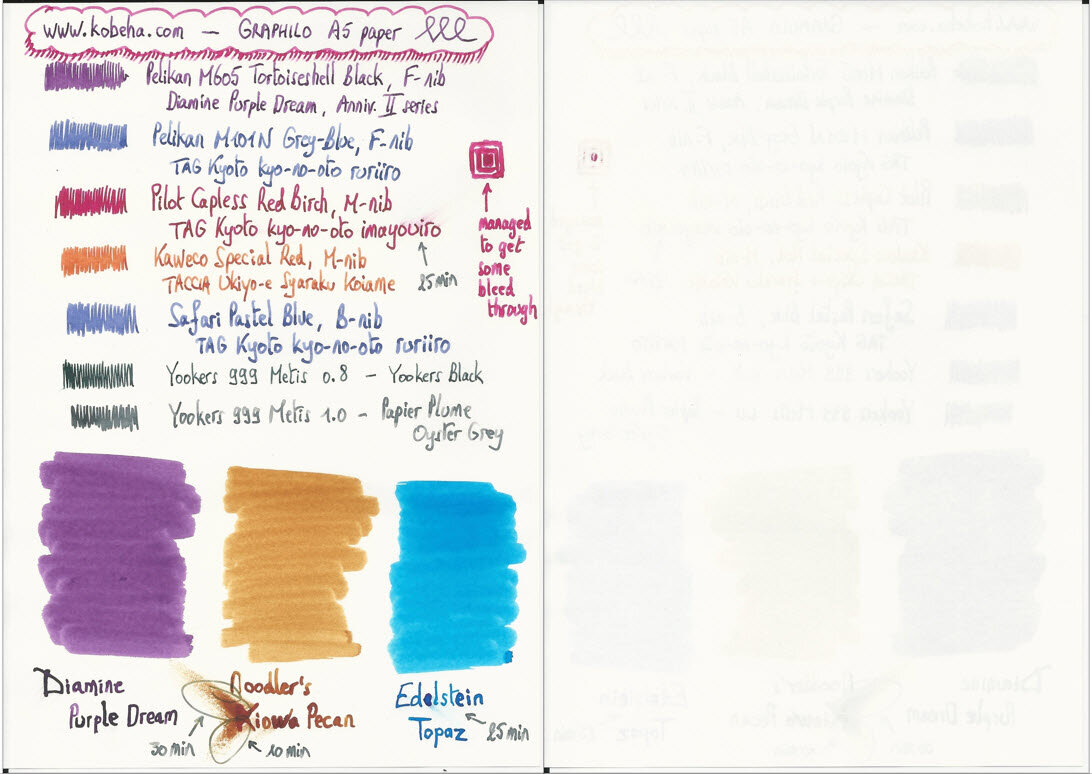 www.kobeha.com — GRAPHILO A5 paper
Pelikan M605 Tortoiseshell Black, F-nib
Diamine Purple Dream, Anniv. II series
Pelikan M101N Grey-Blue, F-nib
TAG Kyoto kyo-no-oto ruriiro
Pilot Capless Red Birch, M-nib
TAG Kyoto kyo-no-oto imayouiro
25min
Kaweco Special Red, M-nib
TACCIA Ukiyo-e Syaraku Koiame
Safari Pastel Blue, B-nib
TAG Kyoto kyo-no-oto ruriiro
Yookers 999 Metis 0.8 – Yookers Black
Yookers 999 Metis 1.0 – Papier Plume
Oyster Grey
managed
to get
some
bleed
through
Diamine
Purple Dream
30min
Noodler's
Kiowa Pecan
10min
Edelstein
Topaz
25min